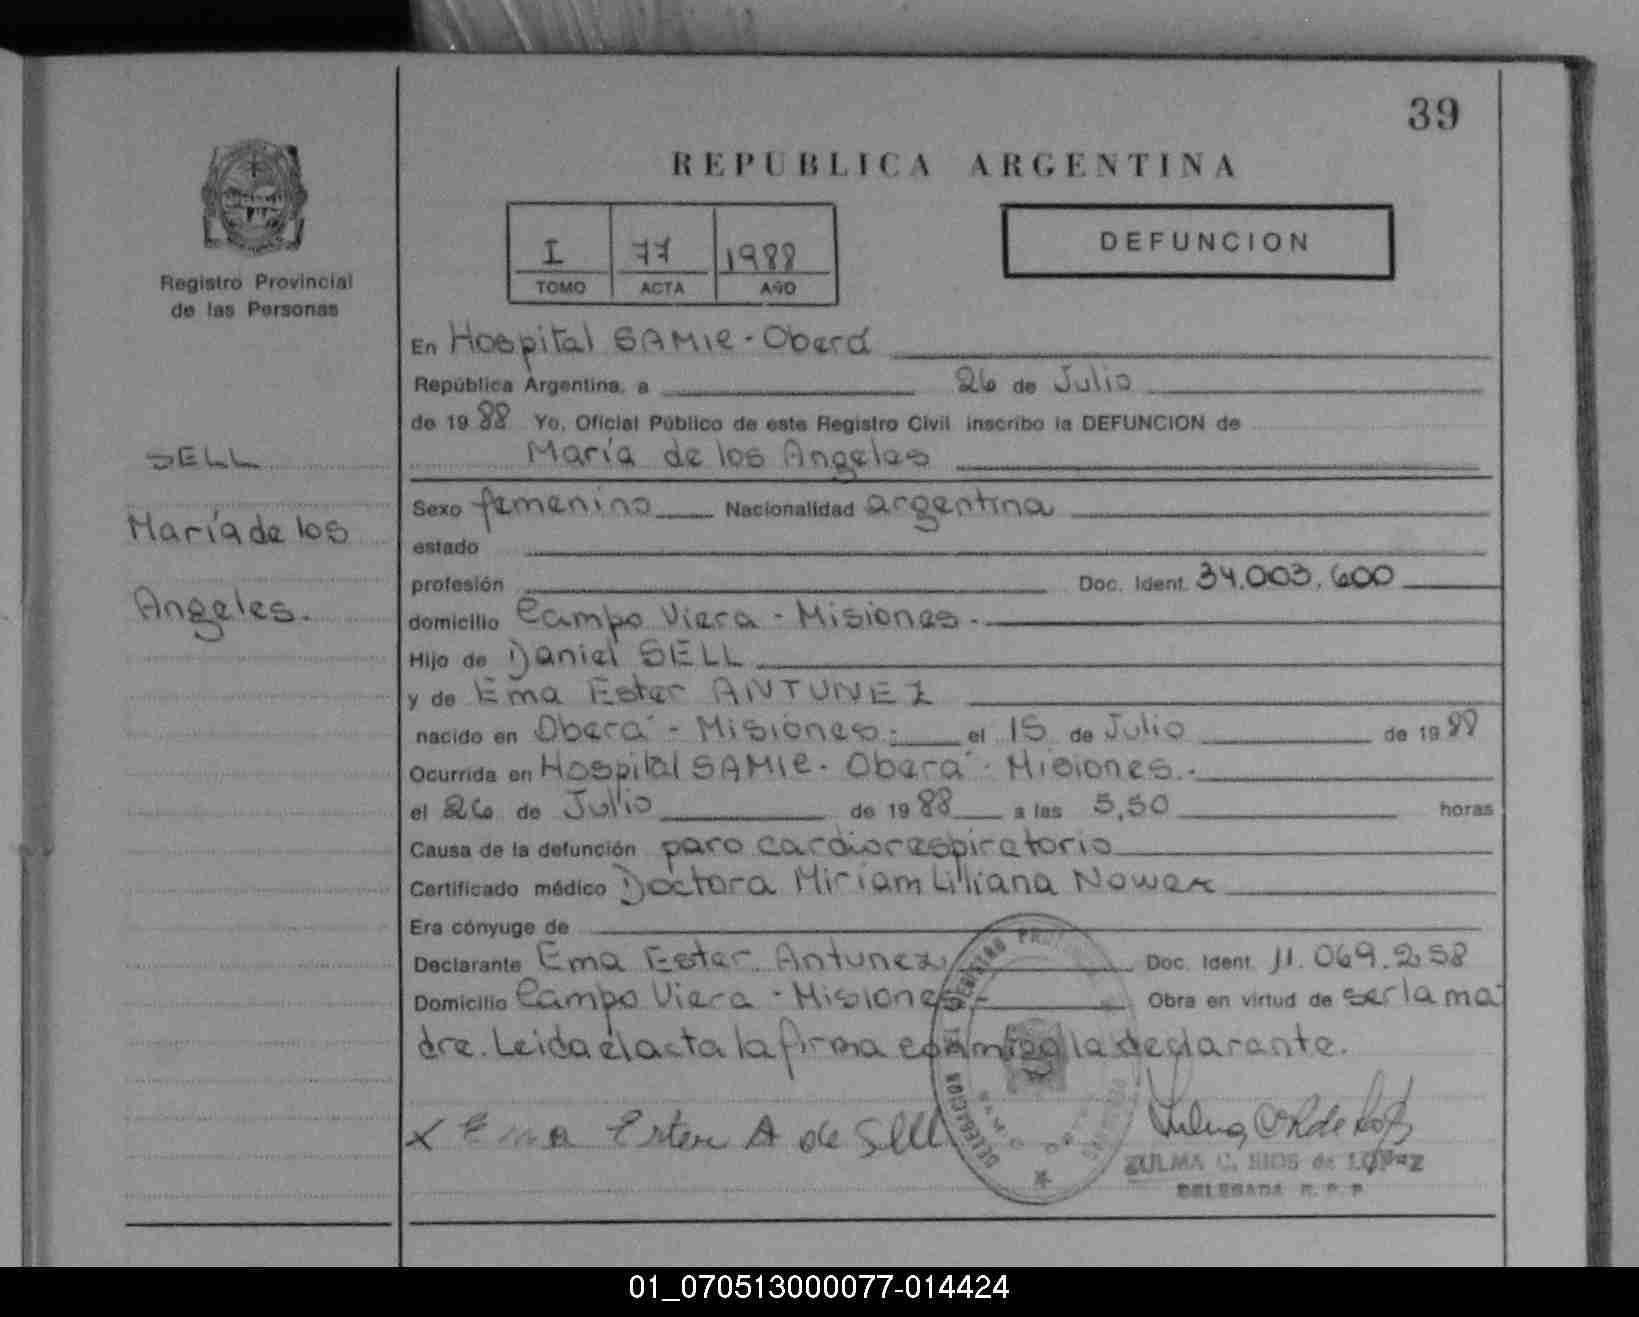 39
REPUBLICA ARGENTINA
I 77 1988
TOMO ACTA AÑO
DEFUNCION
Registro Provincial
de las Personas
SELL
María de los
Angeles.
En Hospital SAMIC - Oberá
República Argentina, a 26 de Julio
de 1988 Yo, Oficial Público de este Registro Civil inscribo la DEFUNCION de
María de los Angeles
Sexo femenino Nacionalidad argentina
estado
profesión Doc. Ident. 34.003.600
domicilio Campo Viera - Misiones.-
Hijo de Daniel SELL
y de Ema Ester ANTUNEZ
nacido en Oberá - Misiones.- el 15 de Julio de 1988
Ocurrida en Hospital SAMIC - Oberá - Misiones.-
el 26 de Julio de 1988 a las 5,50 horas
Causa de la defunción paro cardiorespiratorio
Certificado médico Doctora Miriam Liliana Nowak
Era cónyuge de
Declarante Ema Ester Antunez Doc. Ident. 11.069.258
Domicilio Campo Viera - Misiones - Obra en virtud de ser la ma-
dre. Leida el acta la firma conmigo la declarante.
x Ema Ester A de Sell
ZULMA C. RIOS de LOPEZ
DELEGADA R. P. P.
01_070513000077-014424